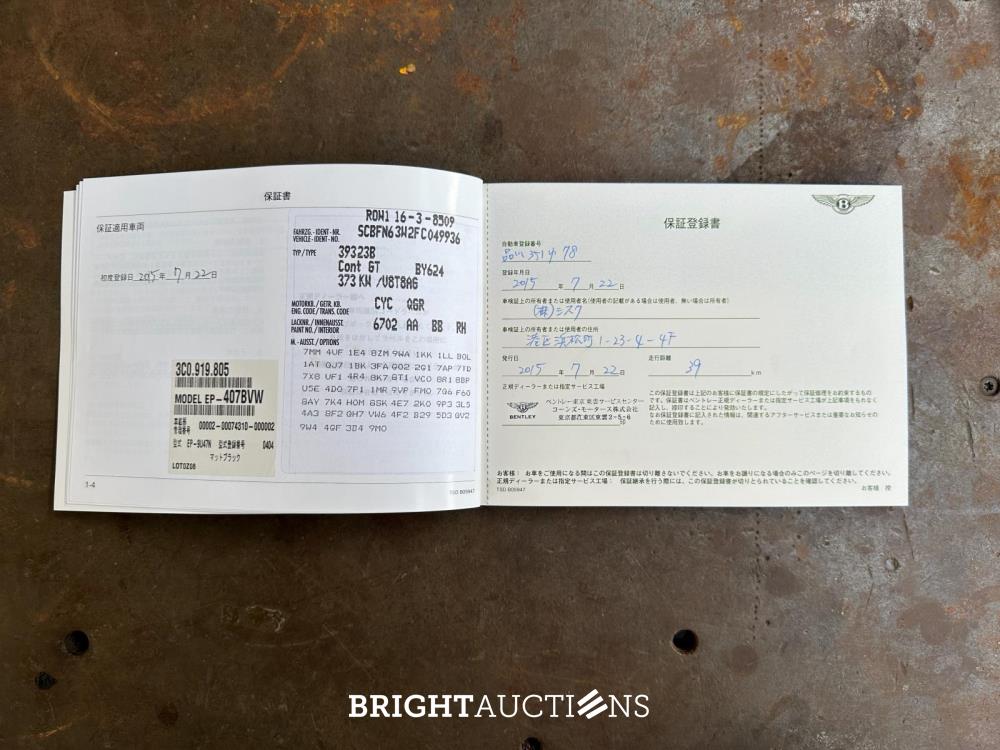 保証書
保証適用車両
初度登録日 2015年 7月22日
ROW1 16-3-8509
FAHRZG.-IDENT-NR.
VEHICLE-IDENT-NO.
SCBFN63W2FC049936
TYP/TYPE
39323B
Cont GT BY624
373 KW /V8T8A6
MOTORKB./GETR. KB.
ENG. CODE/TRANS. CODE
CYC QGR
LACKNR./INNENAUSST.
PAINT NO./INTERIOR
6702 AA BB RH
M.-AUSST./OPTIONS
7MM 4UF 1E4 8ZM 9WA 1KK 1LL BOL
1AT QJ7 1BK 3FA 0G2 2G1 7AP 7TD
7X8 UF1 4R4 8K7 GT1 VC0 8R1 8BP
U5E 4D0 7P1 1MR 9VP FM0 7Q6 F60
8AY 7K4 H0M 6SK 4E7 2K0 9P3 3L5
4A3 8F2 QH7 VW6 4F2 B29 5D3 QV2
9W4 4QF 3D4 9M0
3C0.919.805
MODEL EP-407BVW
車載器
管理番号
00002-00074310-000002
型式 EP-9U47N 型式登録番号 0404
マットブラック
LOTOZ08
1-4
TSD B05947
保証登録書
自動車登録番号
品川 351 78
登録年月日
2015 年 7 月 22 日
車検証上の所有者または使用者名(使用者の記載がある場合は使用者、無い場合は所有者)
(株)シスク
車検証上の所有者または使用者の住所
港区浜松町 1-23-4-4F
発行日
走行距離
2015 年 7 月 22 日 39 km
正規ディーラーまたは指定サービス工場
BENTLEY
ベントレー東京 東雲サービスセンター
コーンズ・モータース株式会社
東京都江東区東雲2-5-6
この保証登録書は上記のお客様に保証書の規定にしたがって保証修理をお約束するものです。保証書はベントレー正規ディーラーまたは指定サービス工場が上記事項をもれなく
記入し、捺印することにより発効いたします。
なお保証登録書に記入された情報は、関連するアフターサービスまたは重要なお知らせの
ために使用致します。
お客様: お車をご使用になる間はこの保証登録書は切り離さないでください。お車をお譲りになる場合のみこのページを切り離してください。
正規ディーラーまたは指定サービス工場: 保証継承を行う際には、この保証登録書が切りとられていることを確認してください。
TSD B05947
お客様 控
BRIGHTAUCTIONS